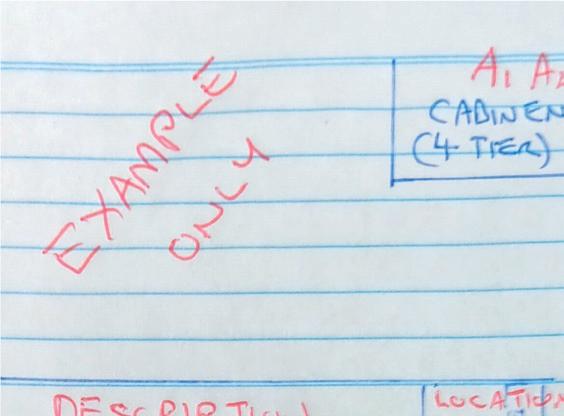 EXAMPLE
ONLY
A1 A2
CABINEN
(4 TIER)
DESCRIPTION
LOCATION